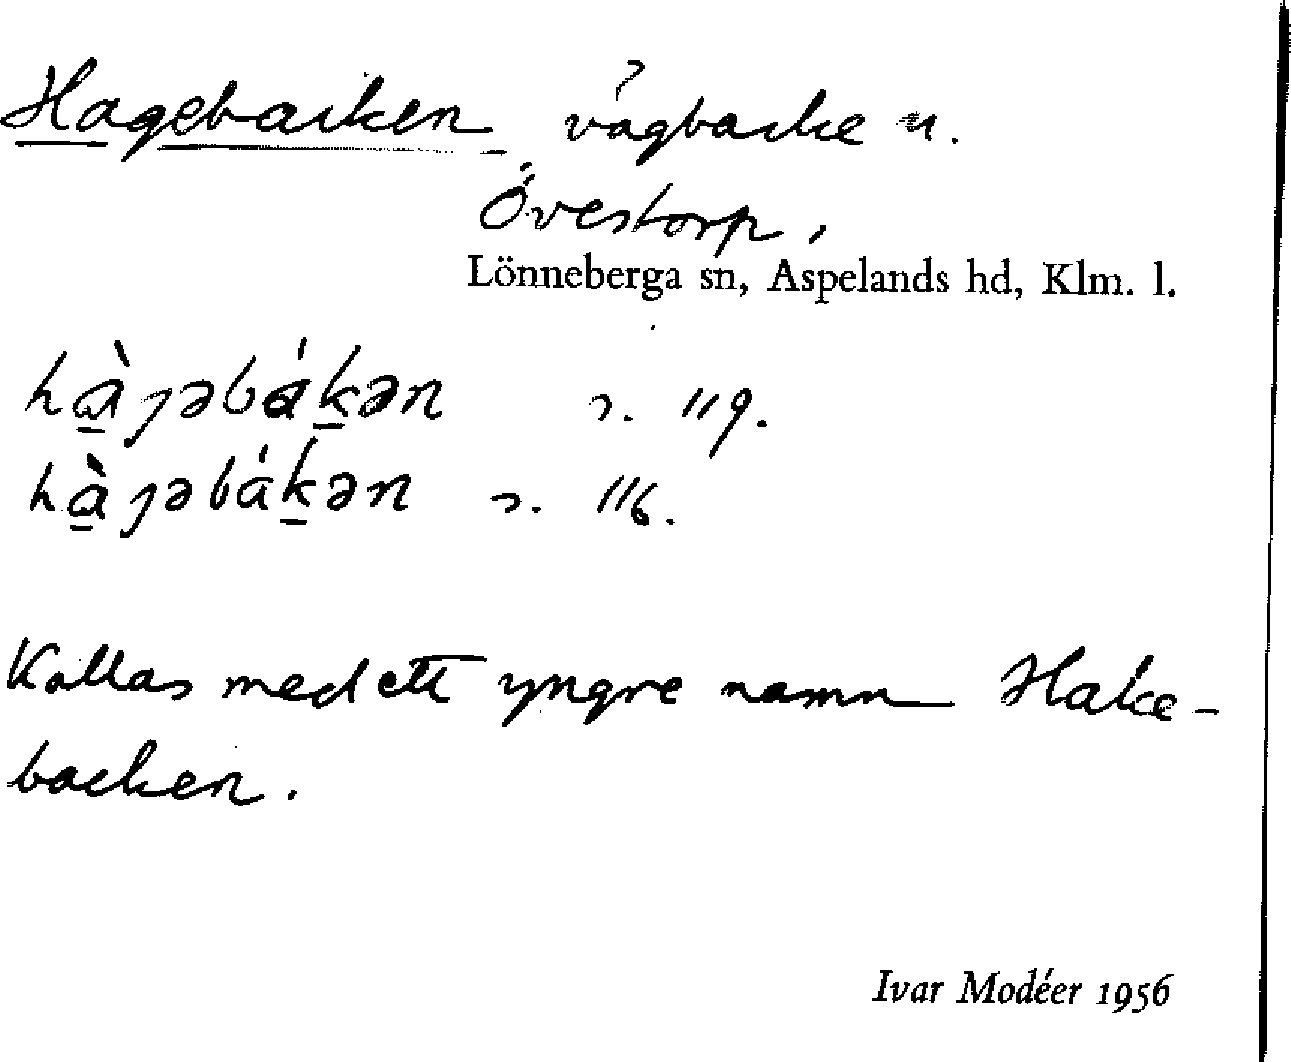 Hagebacken, vägbacke n.
Övestorp,
Lönneberga sn, Aspelands hd, Klm. l.
hàɡəbákən s. 119.
hàɡəbákən s. 116.
Kallas med ett yngre namn Hake-
backen.
Ivar Modéer 1956